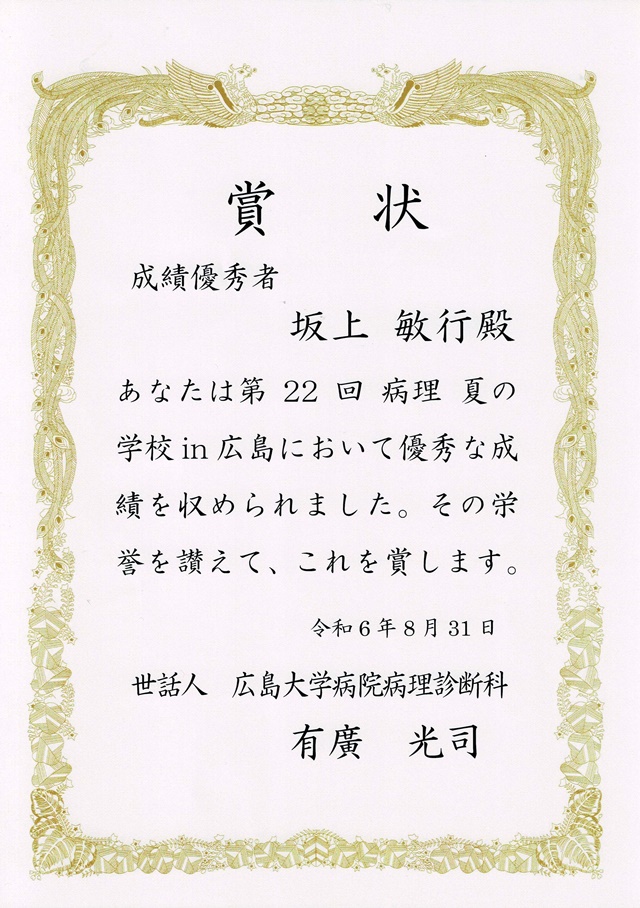 賞 状
成績優秀者
坂上 敏行殿
あなたは第 22 回 病理 夏の
学校 in 広島において優秀な成
績を収められました。その栄
誉を讃えて、これを賞します。
令和6年8月31日
世話人 広島大学病院病理診断科
有廣 光司